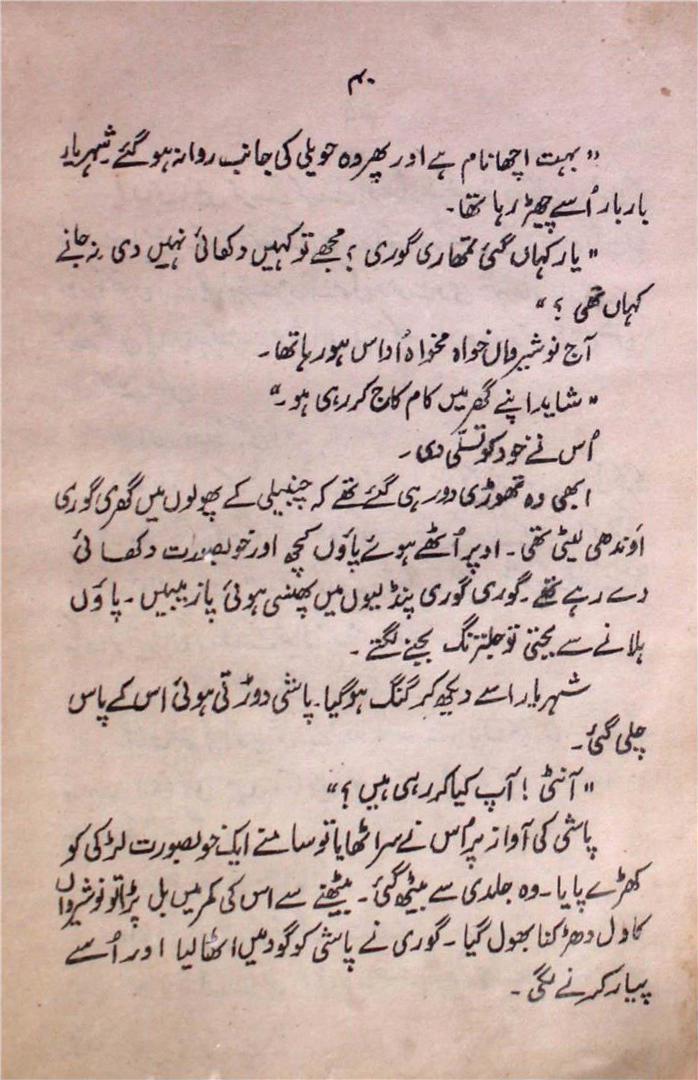 ۴۰
"بہت اچھا نام ہے اور پھر وہ حویلی کی جانب روانہ ہو گئے شہریار
بار بار اُسے چھیڑ رہا تھا۔
"یار کہاں گئی تمھاری گوری؟ مجھے تو کہیں دکھائی نہیں دی نہ جانے
کہاں تھی؟"
آج نوشیرواں خواہ مخواہ اُداس ہو رہا تھا۔
"شاید اپنے گھر میں کام کاج کر رہی ہو۔"
اُس نے خود کو تسلّی دی۔
ابھی وہ تھوڑی دور ہی گئے تھے کہ چنبیلی کے پھولوں میں گھری گوری
اَوندھی لیٹی تھی۔ اوپر اُٹھے ہوئے پاؤں کچھ اور خوبصورت دکھائی
دے رہے تھے۔ گوری گوری پنڈلیوں میں پھنسی ہوئی پازیبیں۔ پاؤں
ہلانے سے بجتی تو جلترنگ بجنے لگتے۔
شہریار اسے دیکھ کر گنگ ہو گیا۔ پاشی دوڑتی ہوئی اس کے پاس
چلی گئی۔
"آنٹی! آپ کیا کر رہی ہیں؟"
پاشی کی آواز پر اُس نے سر اٹھایا تو سامنے ایک خوبصورت لڑکی کو
کھڑے پایا۔ وہ جلدی سے بیٹھ گئی۔ بیٹھنے سے اس کی کمر میں بل پڑا تو نوشیرواں
کا دل دھڑکنا بھول گیا۔ گوری نے پاشی کو گود میں اٹھا لیا اور اُسے
پیار کرنے لگی۔